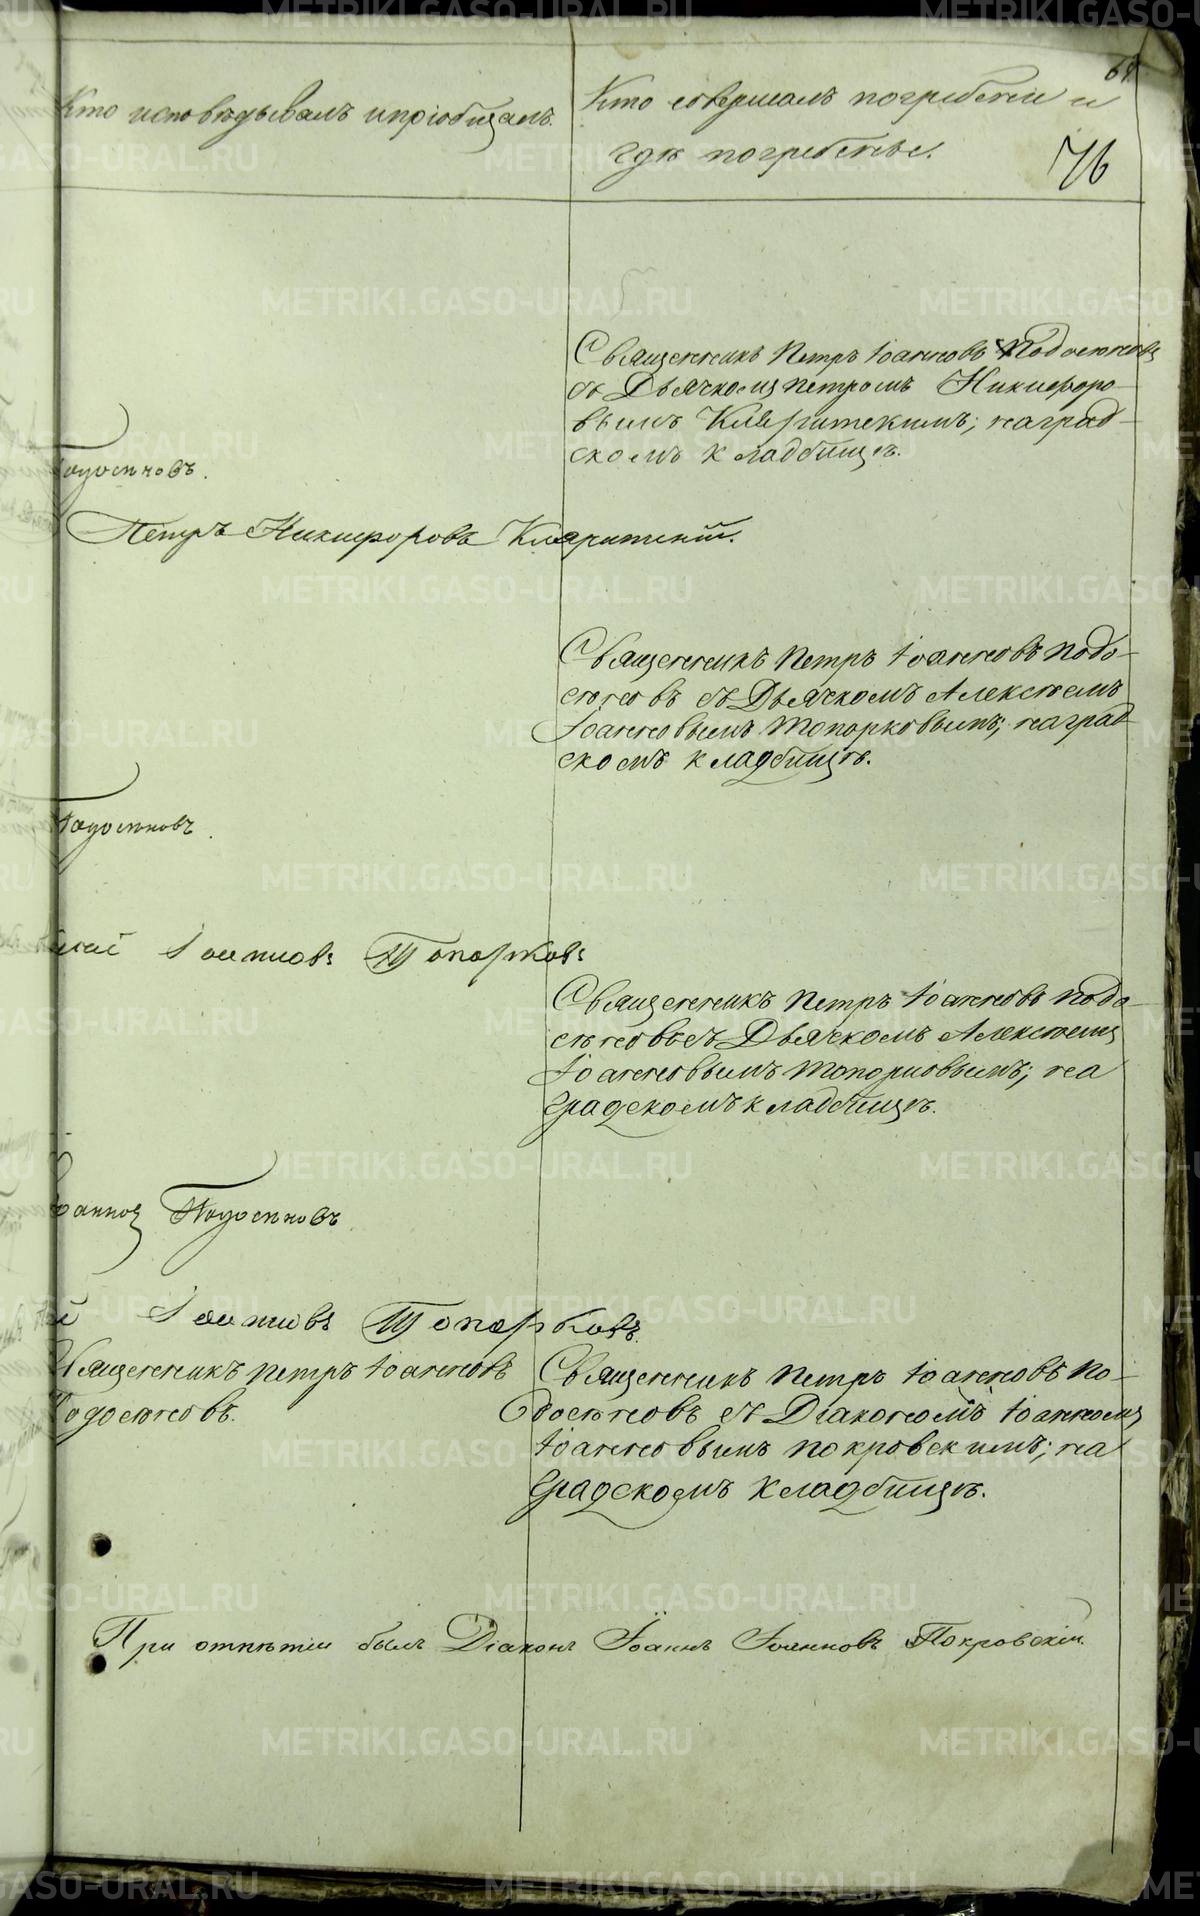 Кто исповѣдывалъ и пріобщалъ.
Кто совершалъ погребеніе и
гдѣ погребены.
76
Священникъ Петръ Іоанновъ Подосѣновъ
съ Дьячкомъ Петромъ Никифоро-
вымъ Кларитскимъ; на град-
скомъ кладбищѣ.
Подосѣновъ.
Петръ Никифоровъ Кларитскій.
Священникъ Петръ Іоанновъ Подо-
сѣновъ съ Дьячкомъ Алексѣемъ
Іоанновымъ Топорковымъ; на град-
скомъ кладбищѣ.
Подосѣновъ.
Іоанновъ Топорковъ
Священникъ Петръ Іоанновъ Подо-
сѣновъ съ Дьячкомъ Алексѣемъ
Іоанновымъ Топорковымъ; на
градскомъ кладбищѣ.
Подосѣновъ
Іоанновъ Топорковъ.
Священникъ Петръ Іоанновъ
Подосѣновъ.
Священникъ Петръ Іоанновъ По-
досѣновъ съ Діакономъ Іоанномъ
Іоанновымъ Покровскимъ; на
градскомъ кладбищѣ.
При отпѣтіи былъ Діаконъ Іоаннъ Іоанновъ Покровскій.
METRIKI.GASO-URAL.RU